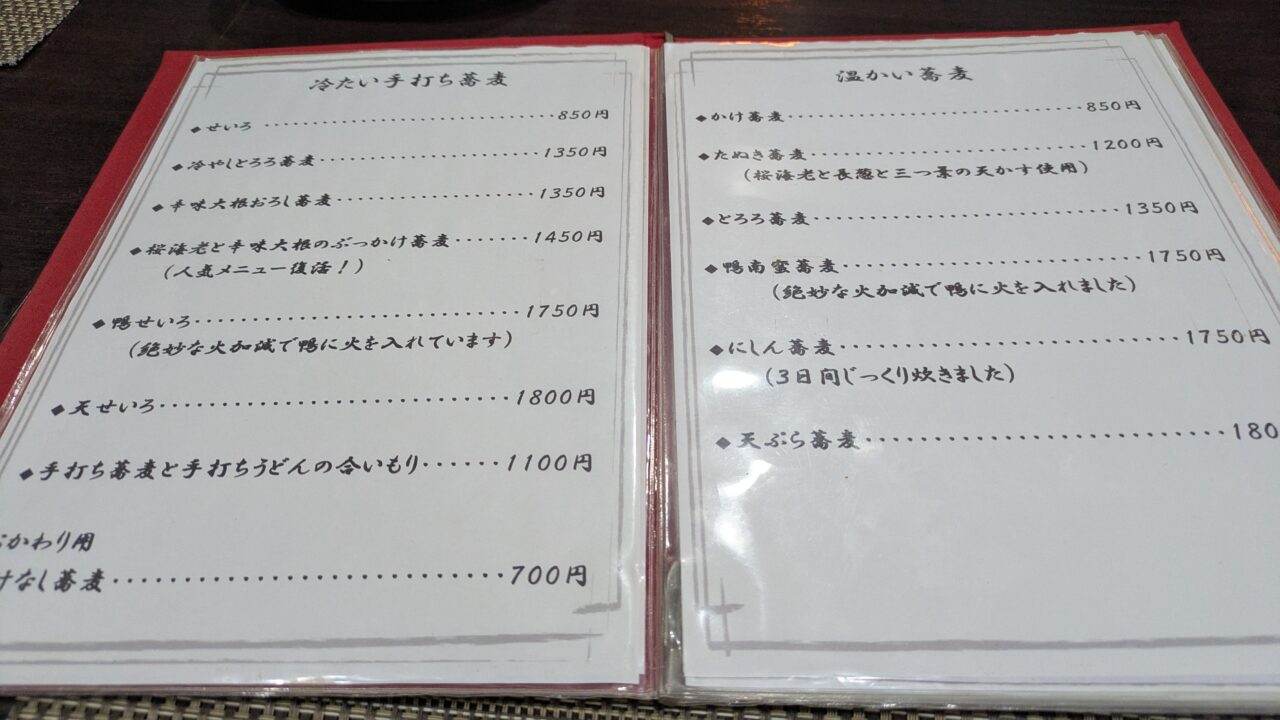 冷たい手打ち蕎麦
◆せいろ‥‥‥‥‥‥‥‥‥‥850円
◆冷やしとろろ蕎麦‥‥‥‥‥‥‥‥‥‥1350円
◆辛味大根おろし蕎麦‥‥‥‥‥‥‥‥‥‥1350円
◆桜海老と辛味大根のぶっかけ蕎麦‥‥‥1450円
(人気メニュー復活！)
◆鴨せいろ‥‥‥‥‥‥‥‥‥‥1750円
(絶妙な火加減で鴨に火を入れています)
◆天せいろ‥‥‥‥‥‥‥‥‥‥1800円
◆手打ち蕎麦と手打ちうどんの合いもり‥‥‥1100円
かわり用
なし蕎麦‥‥‥‥‥‥‥‥‥‥700円
温かい蕎麦
◆かけ蕎麦‥‥‥‥‥‥‥‥‥‥850円
◆たぬき蕎麦‥‥‥‥‥‥‥‥‥‥1200円
(桜海老と長葱と三つ葉の天かす使用)
◆とろろ蕎麦‥‥‥‥‥‥‥‥‥‥1350円
◆鴨南蛮蕎麦‥‥‥‥‥‥‥‥‥‥1750円
(絶妙な火加減で鴨に火を入れました)
◆にしん蕎麦‥‥‥‥‥‥‥‥‥‥1750円
(3日間じっくり炊きました)
◆天ぷら蕎麦‥‥‥‥‥‥‥‥‥‥180